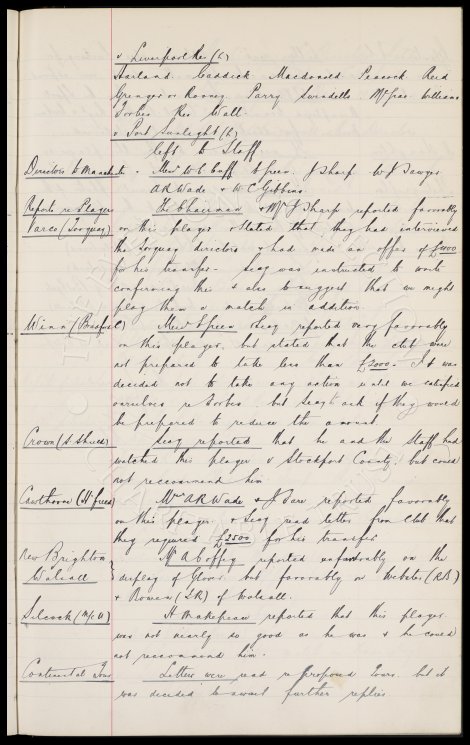 v Liverpool Res (L)
Harland. Caddick. Macdonald. Peacock. Reid
Grainger or Rooney. Parry. Swindells. McGrae. Williams
Forbes. Res Wall.
v Port Sunlight (L)
left to Staff
Directors to Manchester. Messrs W.C. Cuff. E Green. J Sharp. W J Sawyer
A R Wade & W C Gibbins
Reports re Players
The Chairman & Mr J Sharp reported favorably
Parco (Torquay) on this player & stated that they had interviewed
the Torquay directors & had made an offer of £1000
for his transfer. Secy was instructed to write
confirming this & also to suggest that we might
play them a match in addition
Winn (Bradford C) Messrs E Green & Secy reported very favorably
on this player, but stated that the club were
not prepared to take less than £2000. It was
decided not to take any action until we satisfied
ourselves re Forbes but Secy to ask if they would
be prepared to reduce the amount.
Crown (S. Shields) Secy reported that he and the Staff had
watched this player v Stockport County. but could
not reccommend him
Cawthorne (H'field) Messrs A R Wade & J Fare reported favorably
on this player & Secy read letter from Club that
they required £2500 for his transfer
New Brighton
Walsall
Mr A Coffey reported unfavorably on the
display of but favorably on Webster (RB)
& Bowen (IR) of Walsall.
Silcock (M/c U) H Makepeace reported that this player
was not nearly so good as he was & he could
not reccommend him.
Continental Tour Letters were read re proposed Tours. but it
was decided to await further replies